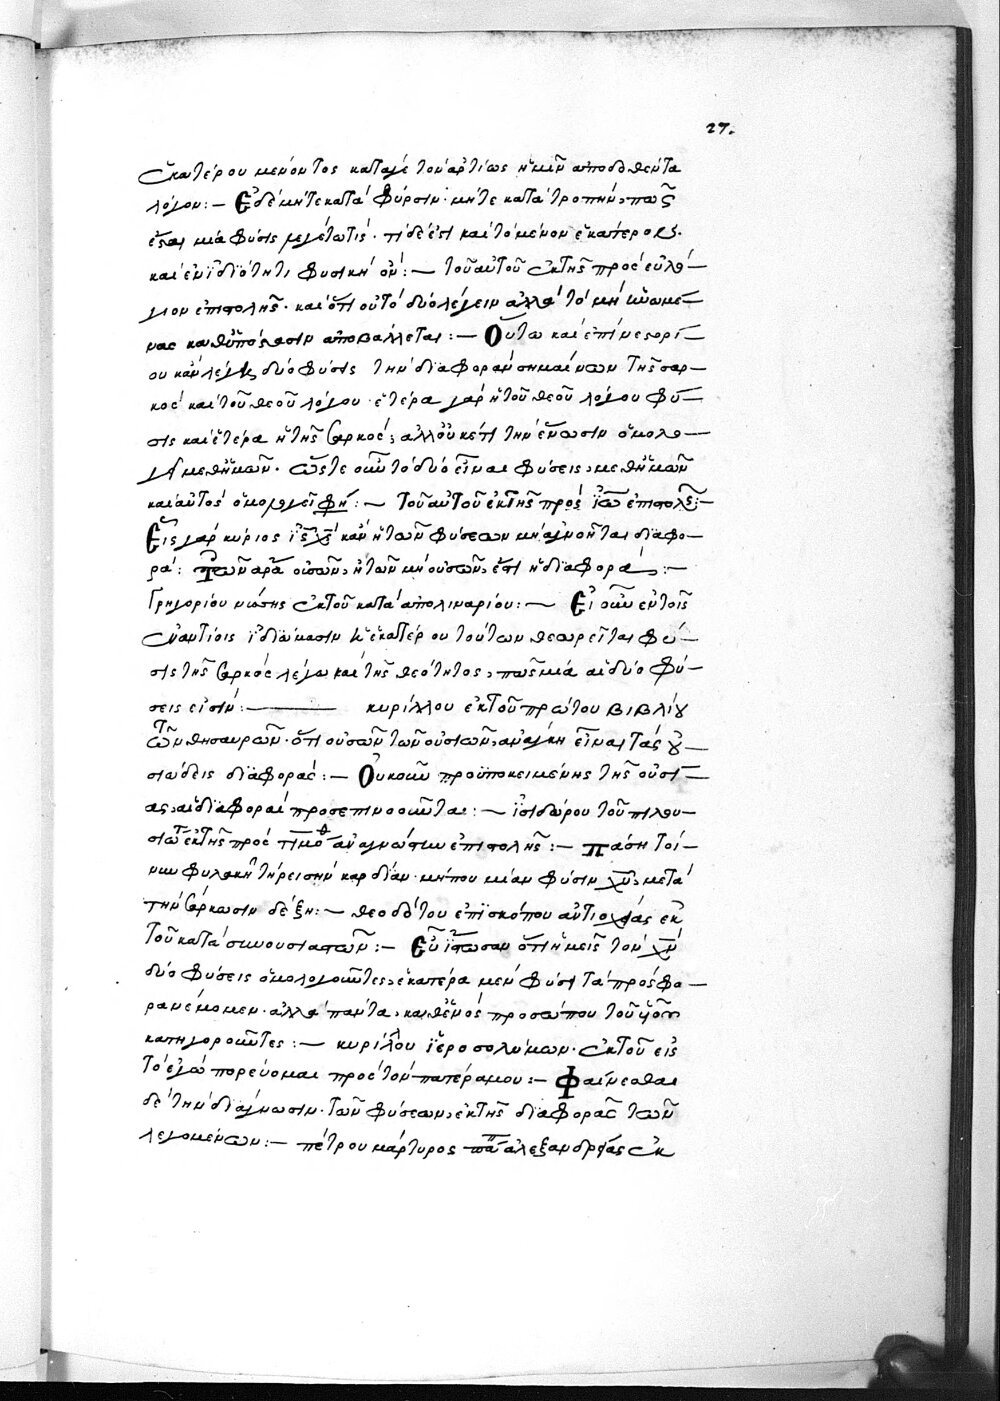 27.
ἑκατέρου μένοντος κατά γε τὸν ἀρτίως ἡμῖν ἀποδοθέντα
λόγον :— Εἰ δὲ μήτε κατὰ φύρσιν· μήτε κατὰ τροπὴν, πῶς
ἔσται μία φύσις
καὶ ἐν ἰδιότητι φυσικῇ ὄν :— τοῦ αὐτοῦ ἐκ τῆς πρὸς εὐλό—
γιον ἐπιστολῆς· καὶ ὅτι οὐ τὸ δύο λέγειν ἀλλὰ τὸ μὴ ἑνωμέ—
νας καθ' ὑπόστασιν ἀποβάλλεται :— Οὕτω καὶ ἐπὶ νεστορί—
ου κἂν λέγῃ δύο φύσεις τὴν διαφορὰν σημαίνων τῆς σαρ—
κὸς καὶ τοῦ θεοῦ λόγου· ἑτέρα γὰρ ἡ τοῦ θεοῦ λόγου φύ—
σις καὶ ἑτέρα ἡ τῆς σαρκός, ἀλλ' οὐκέτι τὴν ἕνωσιν ὁμολο—
γεῖ μεθ' ἡμῶν· ὥστε οὖν τὸ δύο εἶναι φύσεις, μεθ' ἡμῶν
καὶ αὐτὸς ὁμολογεῖ φη :— τοῦ αὐτοῦ ἐκ τῆς πρὸς ἰω ἐπιστολῆς :—
Εἷς γὰρ κύριος ἰς χς κἂν ἡ τῶν φύσεων μὴ ἀγνοῆται διαφο—
ρά : Τῶν ἄρα οὐσῶν, ἢ τῶν μὴ οὐσῶν, ἐστὶ ἡ διαφορά :—
Γρηγορίου νύσης ἐκ τοῦ κατὰ ἀπολιναρίου :— Εἰ οὖν ἐν τοῖς
ἐναντίοις ἰδιώμασιν ἡ ἑκατέρου τούτων θεωρεῖται φύ—
σις τῆς σαρκὸς λέγω καὶ τῆς θεότητος, πῶς μία αἱ δύο φύ—
σεις εἰσίν :— κυρίλλου ἐκ τοῦ πρώτου βιβλίου
τῶν θησαυρῶν· ὅτι οὐσῶν τῶν οὐσιῶν, ἀνάγκη εἶναι τὰς οὐ—
σιώδεις διαφοράς :— Οὐκοῦν προϋποκειμένης τῆς οὐσί—
ας, αἱ διαφοραὶ προσεπινοοῦνται :— ἰσιδώρου τοῦ πιλου—
σιώτ ἐκ τῆς πρὸς τιμόθ ἀναγνώστην ἐπιστολῆς :— πάσῃ τοί—
νυν φυλακῇ τήρει σὴν καρδίαν· μήπου μίαν φύσιν χυ, μετὰ
τὴν σάρκωσιν δέξῃ :— θεοδότου ἐπισκόπου ἀντιοχείας ἐκ
τοῦ κατὰ συνουσιαστῶν :— Εὖ ἴστωσαν ὅτι ἡμεῖς τὸν χν
δύο φύσεις ὁμολογοῦντες, ἑκατέρα μὲν φύσει τὰ πρόσφο—
ρα νέμομεν· ἀλλὰ πάντα, καθ' ἑνὸς προσώπου τοῦ
κατηγοροῦντες :— κυρίλλου ἱεροσολύμων· ἐκ τοῦ εἰς
τὸ ἐγὼ πορεύομαι πρὸς τὸν πατέρα μου :— Φαίνεσθαι
δὲ τὴν διάγνωσιν· τῶν φύσεων, ἐκ τῆς διαφορᾶς τῶν
λεγομένων :— πέτρου μάρτυρος παπ ἀλεξανδρείας ἐκ